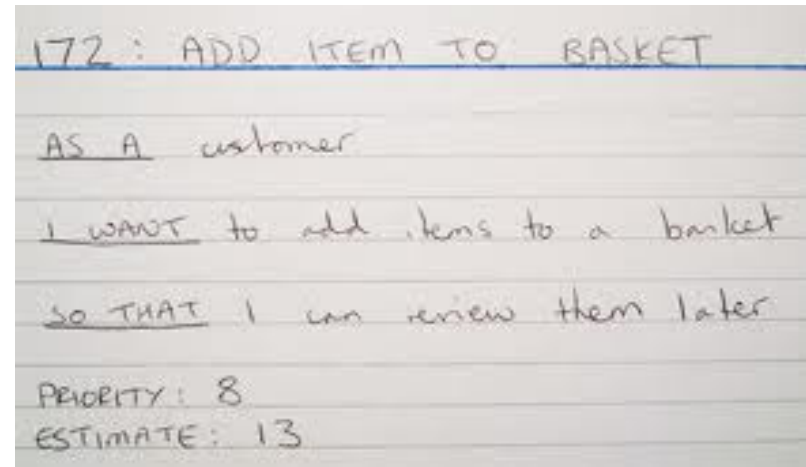 172: ADD ITEM TO BASKET
AS A customer
I WANT to add items to a basket
SO THAT I can review them later
PRIORITY: 8
ESTIMATE: 13